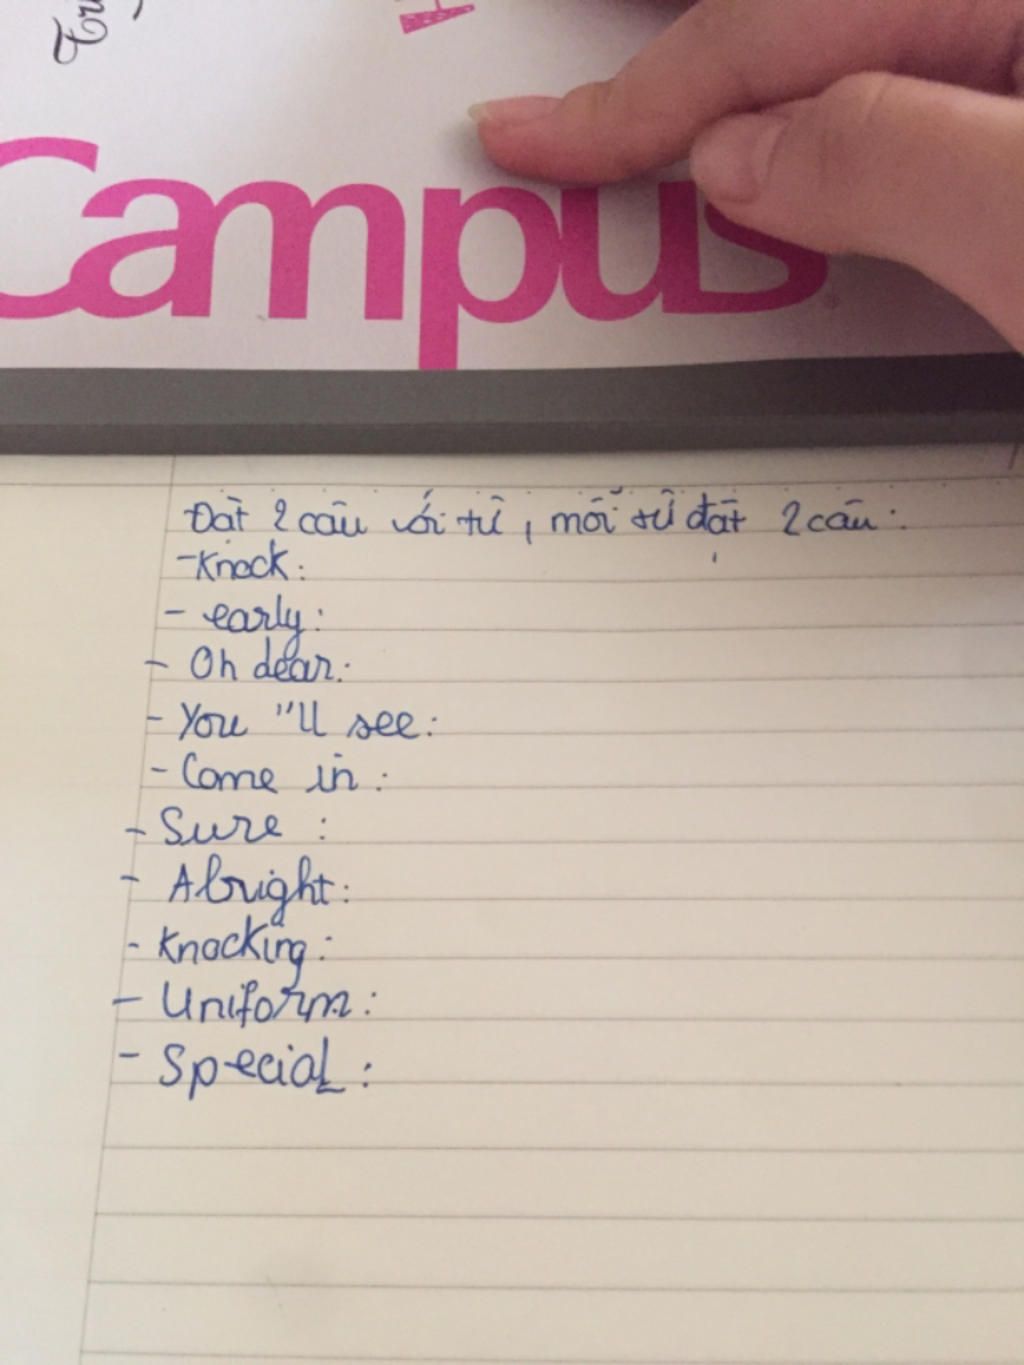 Campus
Đặt 2 câu với từ, mỗi từ đặt 2 câu:
- Knock:
- early:
- Oh dear:
- You "ll see:
- Come in:
- Sure :
- Alright:
- Knocking:
- Uniform:
- Special: